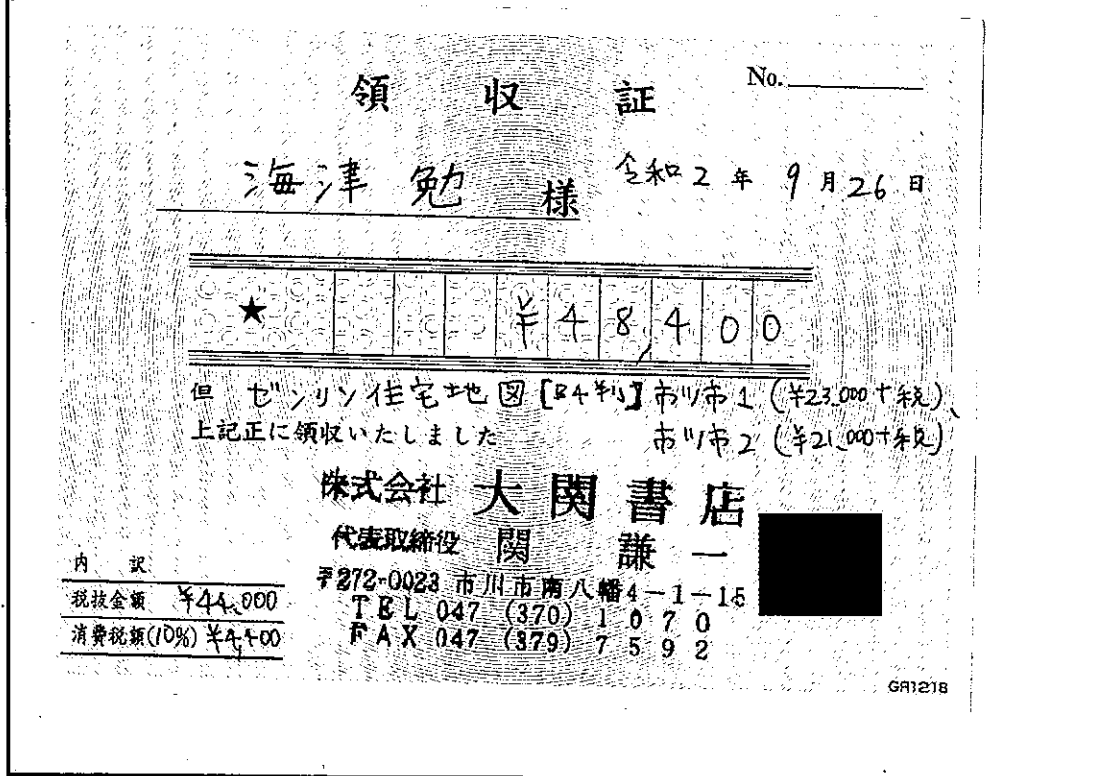 領収証
No.
海津 勉 様
令和2年9月26日
★ ¥48,400
但 ゼンリン住宅地図[B4判] 市川市1(¥23,000+税)、
上記正に領収いたしました 市川市2(¥21,000+税)
株式会社 大関書店
代表取締役 関 謙一
〒272-0023 市川市南八幡4-1-15
TEL 047 (370) 1070
FAX 047 (379) 7592
内訳
税抜金額 ¥44,000
消費税額(10%) ¥4,400
GR1218